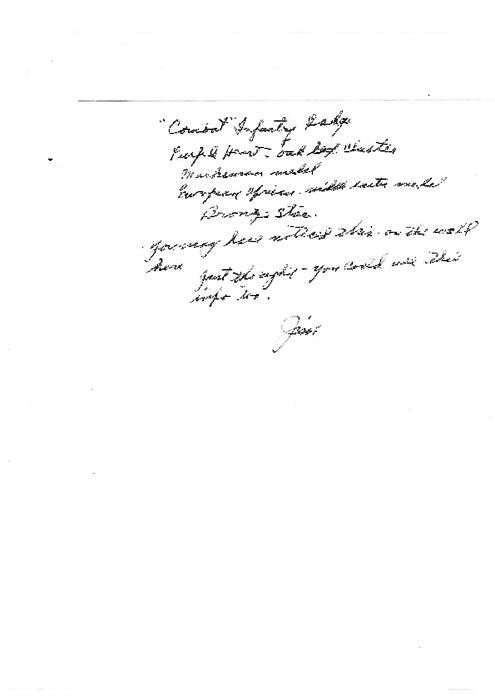 "Combat" Infantry Badge
Purple Heart - Oak Leaf Cluster
Marksman medal
European African middle medal
Bronze Star.
You may have noticed this on the wall
here
Just thought - you could use this
info too.
Jim